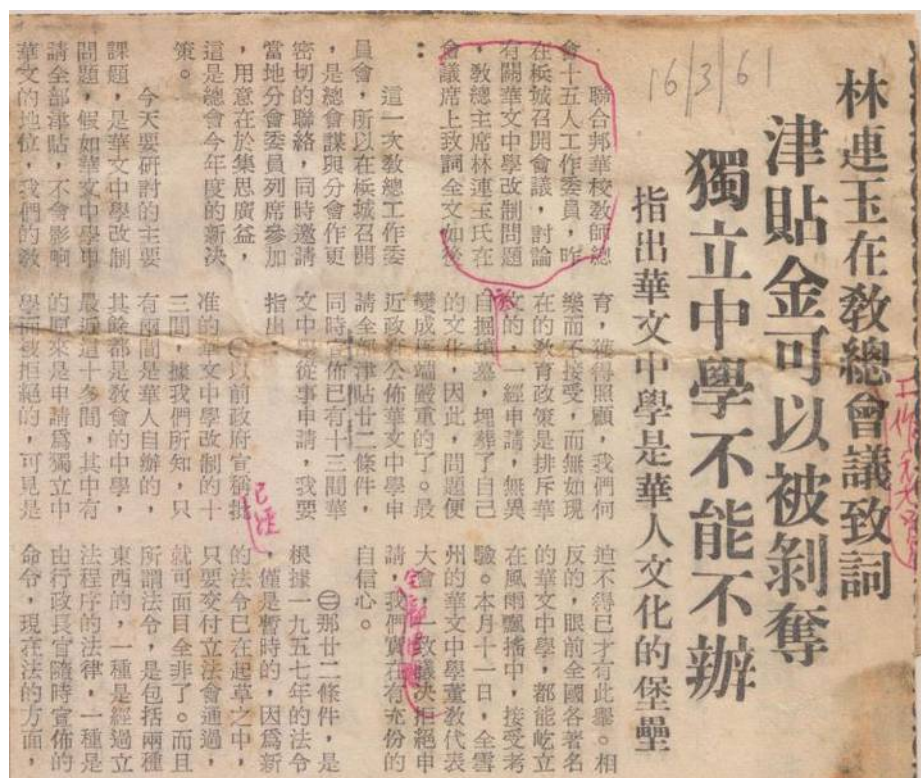 林連玉在教總會議致詞
津貼金可以被剝奪
獨立中學不能不辦
指出華文中學是華人文化的堡壘
16/3/61
聯合邦華校教師總
會十五人工作委員,昨
在檳城召開會議,討論
有關華文中學改制問題
,教總主席林連玉氏在
會議席上致詞全文如後
:
這一次教總工作委
員會,所以在檳城召開
,是總會謀與分會作更
密切的聯絡,同時邀請
當地分會委員列席參加
,用意在於集思廣益,
這是總會今年度的新決
策。
今天要研討的主要
課題,是華文中學改制
問題,假如華文中學申
請全部津貼,不會影响
華文的地位,我們的教
育,獲得照顧,我們何
樂而不接受,而無如現
在的教育政策是排斥華
文的,一經申請,無異
自掘墳墓,埋葬了自己
的文化,因此,問題便
變成極端嚴重的了。最
近政府公佈華文中學申
請全部津貼廿二條件,
同時宣佈已有十三間華
文中學從事申請,我要
指出:
㊀以前政府宣稱批
准的華文中學改制的十
三間,據我們所知,只
有兩間是華人自辦的,
其餘都是教會的中學,
最近這十多間,其中有
的原來是申請爲獨立中
學而被拒絕的,可見是
已經
迫不得已才有此舉。相
反的,眼前全國各著名
的華文中學,都能屹立
在風雨飄搖中,接受考
驗。本月十一日,全雪
州的華文中學董教代表
大會,一致議决拒絕申
請,我們實在有充份的
自信心。
㊁那廿二條件,是
根據一九五七年的法令
,僅是暫時的,因爲新
的法令已在起草之中,
只要交付立法會通過,
就可面目全非了。而且
所謂法令,是包括兩種
東西的,一種是經過立
法程序的法律,一種是
由行政長官隨時宣佈的
命令,現在法的方面,